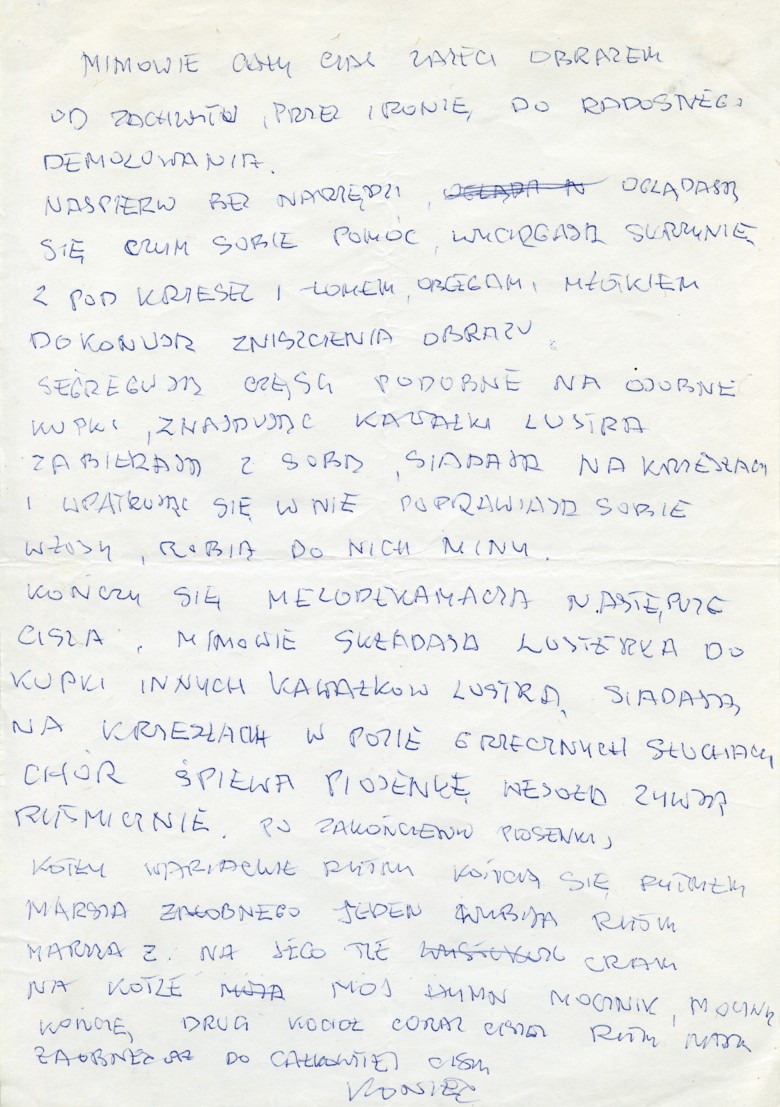 MIMOWIE CAŁY CZAS ZAJĘCI OBRAZEM
OD ZACHWYTU, PRZEZ IRONIĘ, DO RADOSNEGO
DEMOLOWANIA.
NAJPIERW BEZ NARZĘDZI, OGLĄDAJĄ
SIĘ CZYM SOBIE POMÓC, WYCIĄGAJĄ SKRZYNIĘ
Z POD KRZESEŁ I ŁOMEM, OBCĘGAMI, MŁOTKIEM
DOKONUJĄ ZNISZCZENIA OBRAZU.
SEGREGUJĄ CZĘŚCI PODOBNE NA OSOBNE
KUPKI, ZNAJDUJĄC KAWAŁKI LUSTRA
ZABIERAJĄ Z SOBĄ, SIADAJĄ NA KRZESŁACH
I WPATRUJĄC SIĘ W NIE POPRAWIAJĄ SOBIE
WŁOSY, ROBIĄ DO NICH MINY.
KOŃCZY SIĘ MELODEKLAMACJA NASTĘPUJE
CISZA. MIMOWIE SKŁADAJĄ LUSTERKA DO
KUPKI INNYCH KAWAŁKÓW LUSTRA, SIADAJĄ
NA KRZESŁACH W POZIE GRZECZNYCH SŁUCHACZY
CHÓR ŚPIEWA PIOSENKĘ WESOŁĄ ŻYWĄ
RYTMICZNIE. PO ZAKOŃCZENIU PIOSENKI,
KOTŁY WARIACYJNE RYTMY KOŃCZĄ SIĘ RYTMEM
MARSZA ŻAŁOBNEGO JEDEN WYBIJA RYTM
MARSZA Ż. NA JEGO TLE GRAM
NA KOTLE MÓJ HYMN MOCNIK, MOCNY
KOŃCZĘ, DRUGI KOCIOŁ CORAZ CISZEJ RYTM MARSZA
ŻAŁOBNEGO AŻ DO CAŁKOWITEJ CISZY
KONIEC